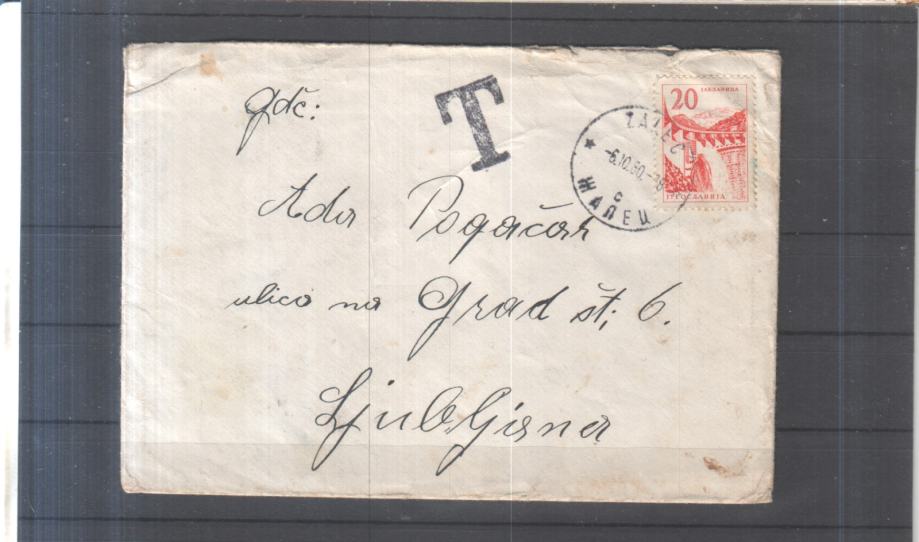 gdč:
T
20
ЈАБЛАНИЦА
ЈУГОСЛАВИЈА
ŽALEC
-6.10.60.-18
c
ЖАЛЕЦ
Ada Pogačar
ulica na Grad št; 6.
Ljubljana